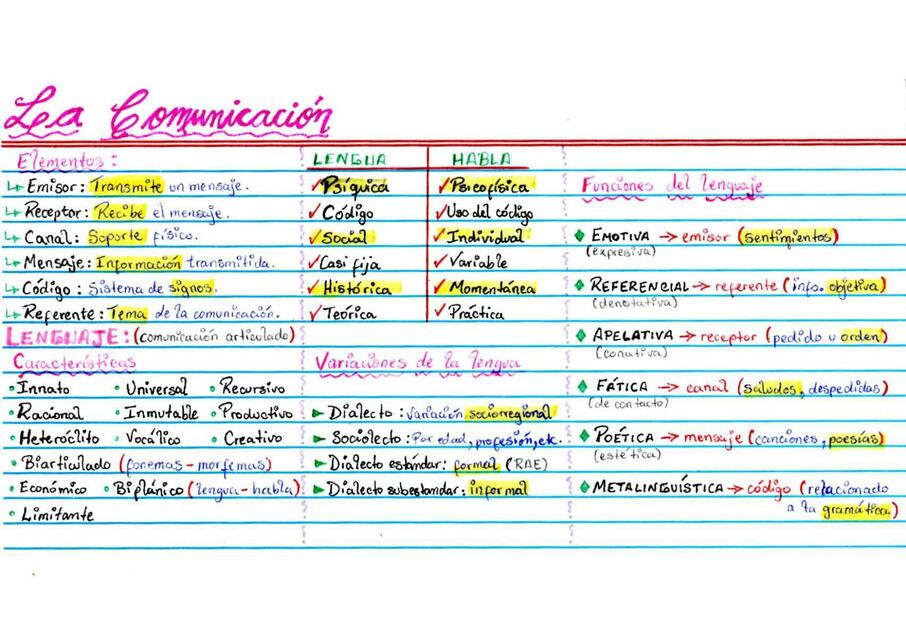 La Comunicación
Elementos:
↳ Emisor: Transmite un mensaje.
↳ Receptor: Recibe el mensaje.
↳ Canal: Soporte físico.
↳ Mensaje: Información transmitida.
↳ Código: Sistema de signos.
↳ Referente: Tema de la comunicación.
LENGUA HABLA
✓Psíquica ✓Psicofísica
✓Código ✓Uso del código
✓Social ✓Individual
✓Casi fija ✓Variable
✓Histórica ✓Momentánea
✓Teórica ✓Práctica
LENGUAJE: (comunicación articulado)
Características
• Innato • Universal • Recursivo
• Racional • Inmutable • Productivo
• Heteróclito • Vocálico • Creativo
• Biarticulado (fonemas - morfemas)
• Económico • Biplánico (lengua - habla)
• Limitante
Variaciones de la lengua
► Dialecto: variación socioregional
► Sociolecto: Por edad, profesión, etc.
► Dialecto estándar: formal (RAE)
► Dialecto subestandar: informal
Funciones del lenguaje
◆ EMOTIVA → emisor (sentimientos)
(expresiva)
◆ REFERENCIAL → referente (info. objetiva)
(denotativa)
◆ APELATIVA → receptor (pedido u orden)
(conativa)
◆ FÁTICA → canal (saludos, despedidas)
(de contacto)
◆ POÉTICA → mensaje (canciones, poesías)
(estética)
◆ METALINGUÍSTICA → código (relacionado
a la gramática)